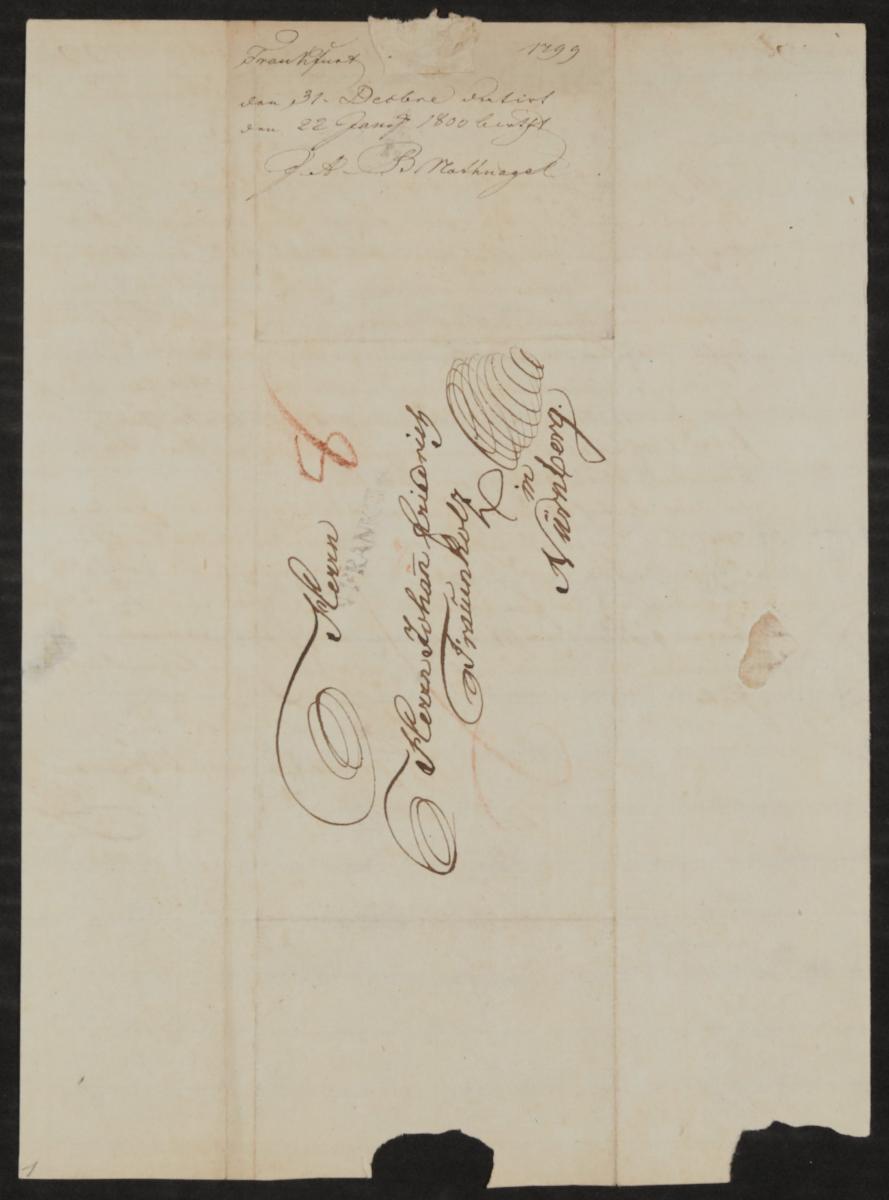 Frankfurt 1799
den 31. Decbre datirt
den 22 Janʒ 1800 beantw
J. A. B Nothnagel
8
Herrn
FRANK
Herrn Johan̄ Friedrich
Frauenholz
in
Nürnberg.